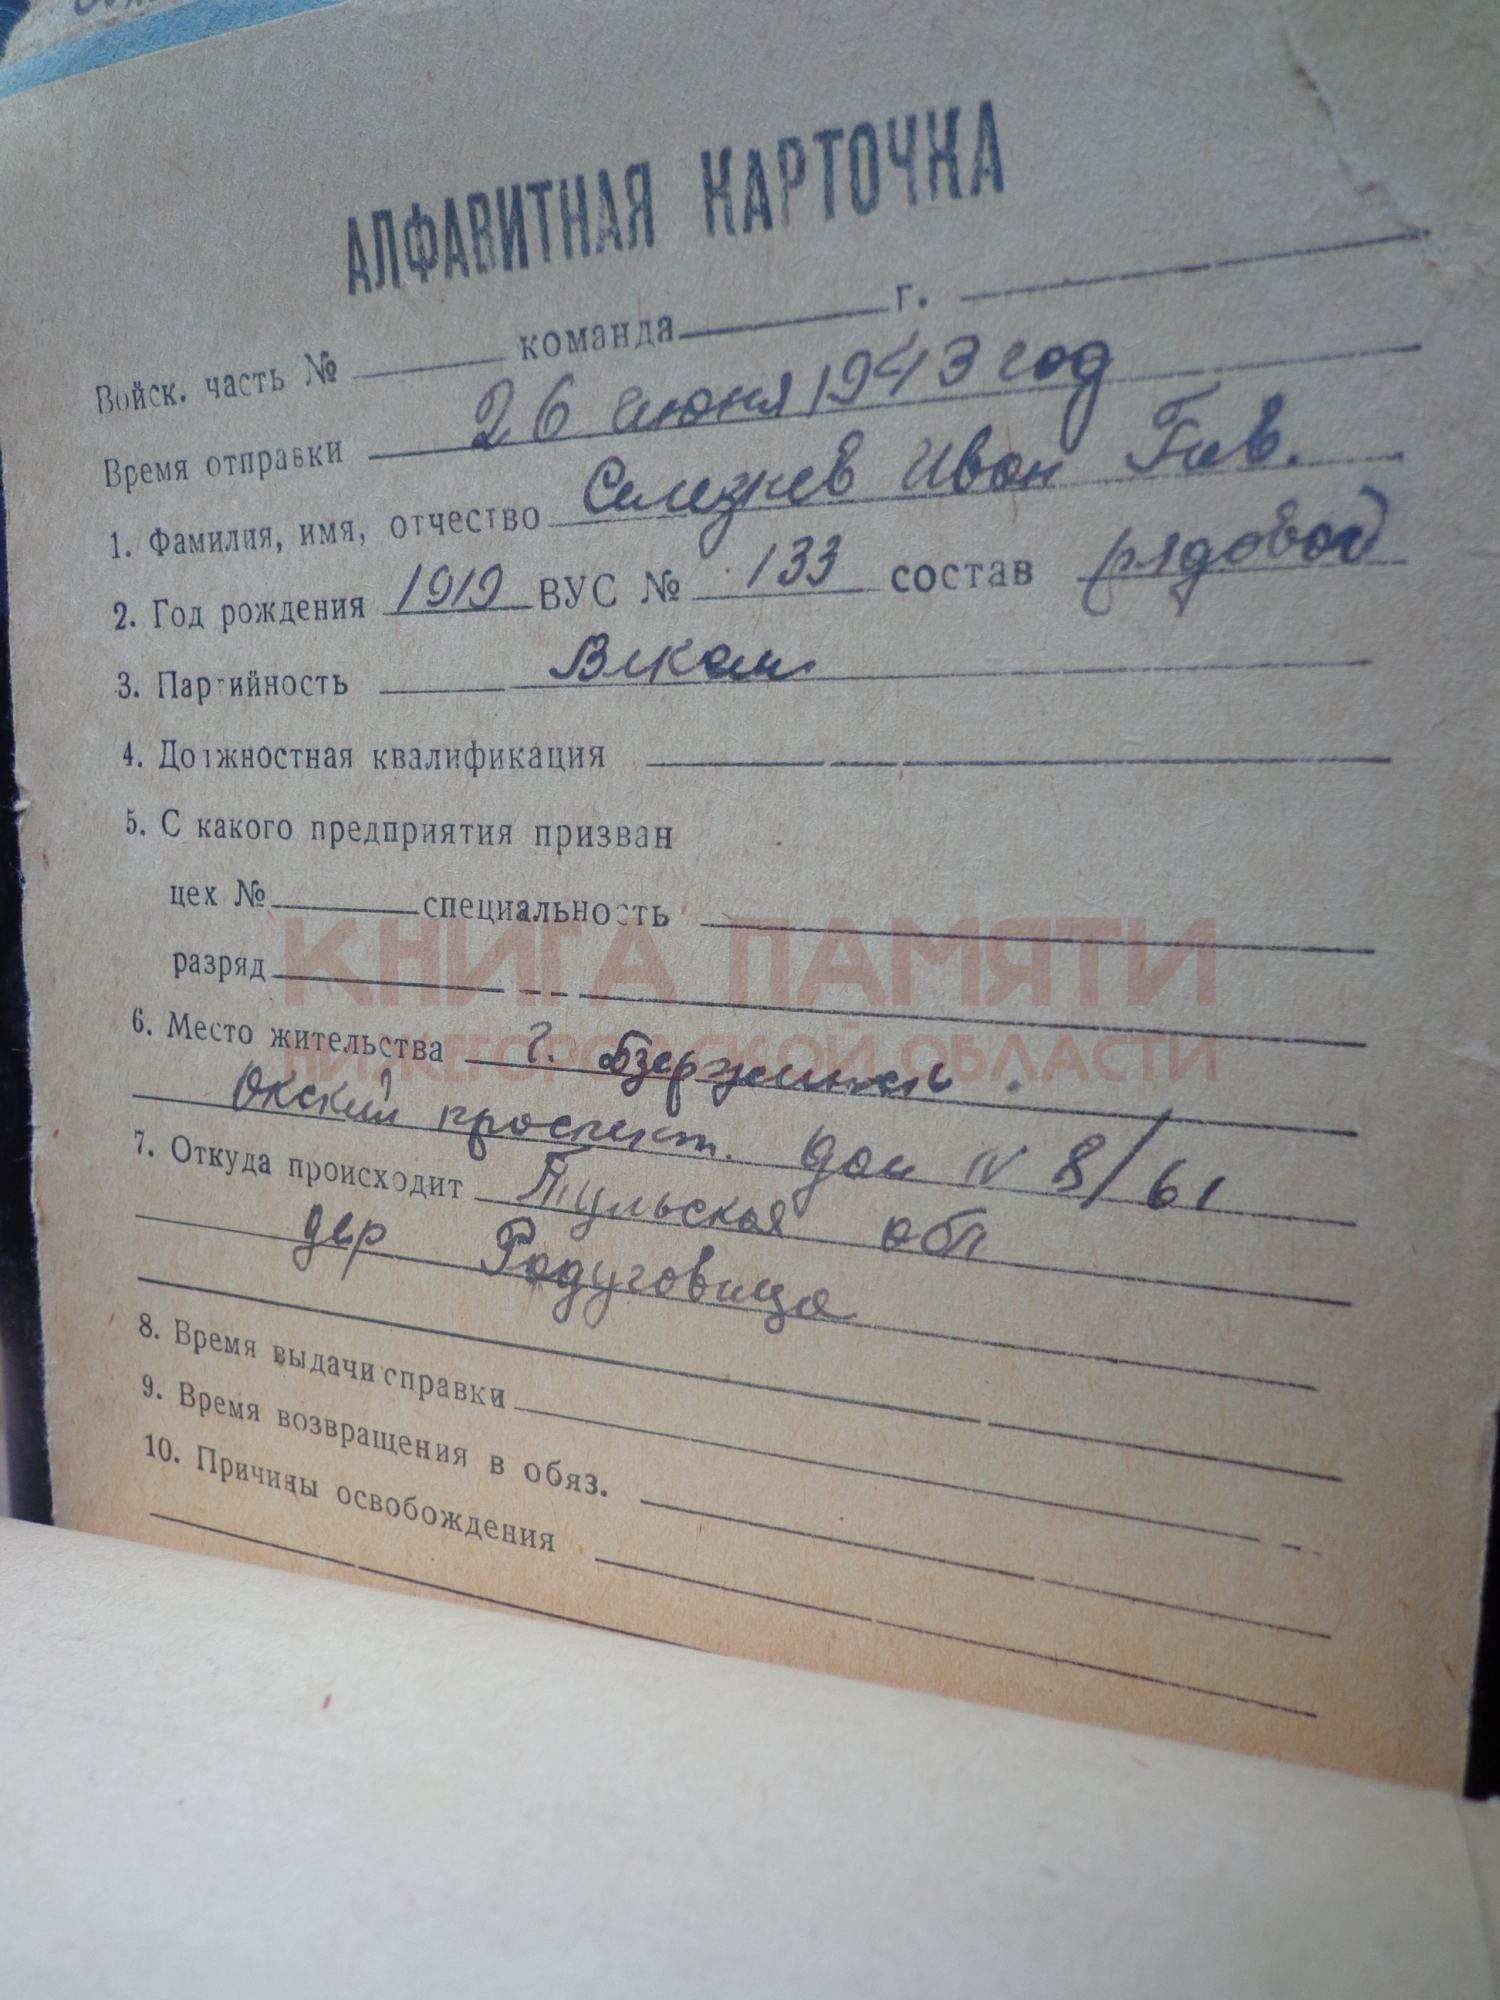 АЛФАВИТНАЯ КАРТОЧКА
Войск. часть № команда г.
Время отправки 26 июня 1943 год
1. Фамилия, имя, отчество Селезнев Иван Гав.
2. Год рождения 1919 ВУС № 133 состав рядовой
3. Партийность Влксм
4. Должностная квалификация
5. С какого предприятия призван
цех № специальность
КНИГА ПАМЯТИ
разряд
6. Место жительства г. Дзержинск
НИЖЕГОРОДСКОЙ ОБЛАСТИ
Окский проспект. дом N 8/61
7. Откуда происходит Тульская обл
дер Радуговища
8. Время выдачи справки
9. Время возвращения в обяз.
10. Причины освобождения